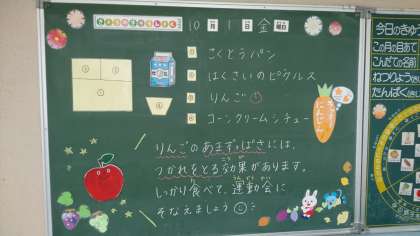 きょうのきゅうしょく
10月 1日 金曜日
さくとうパン
はくさいのピクルス
りんご
コーンクリームシチュー
りんごのあまずっぱさには、
つかれをとる効果があります。
しっかり食べて、運動会に
そなえましょう
今日のきゅう
この月の目あて
こんだての名前
ねつりょう
たんぱく